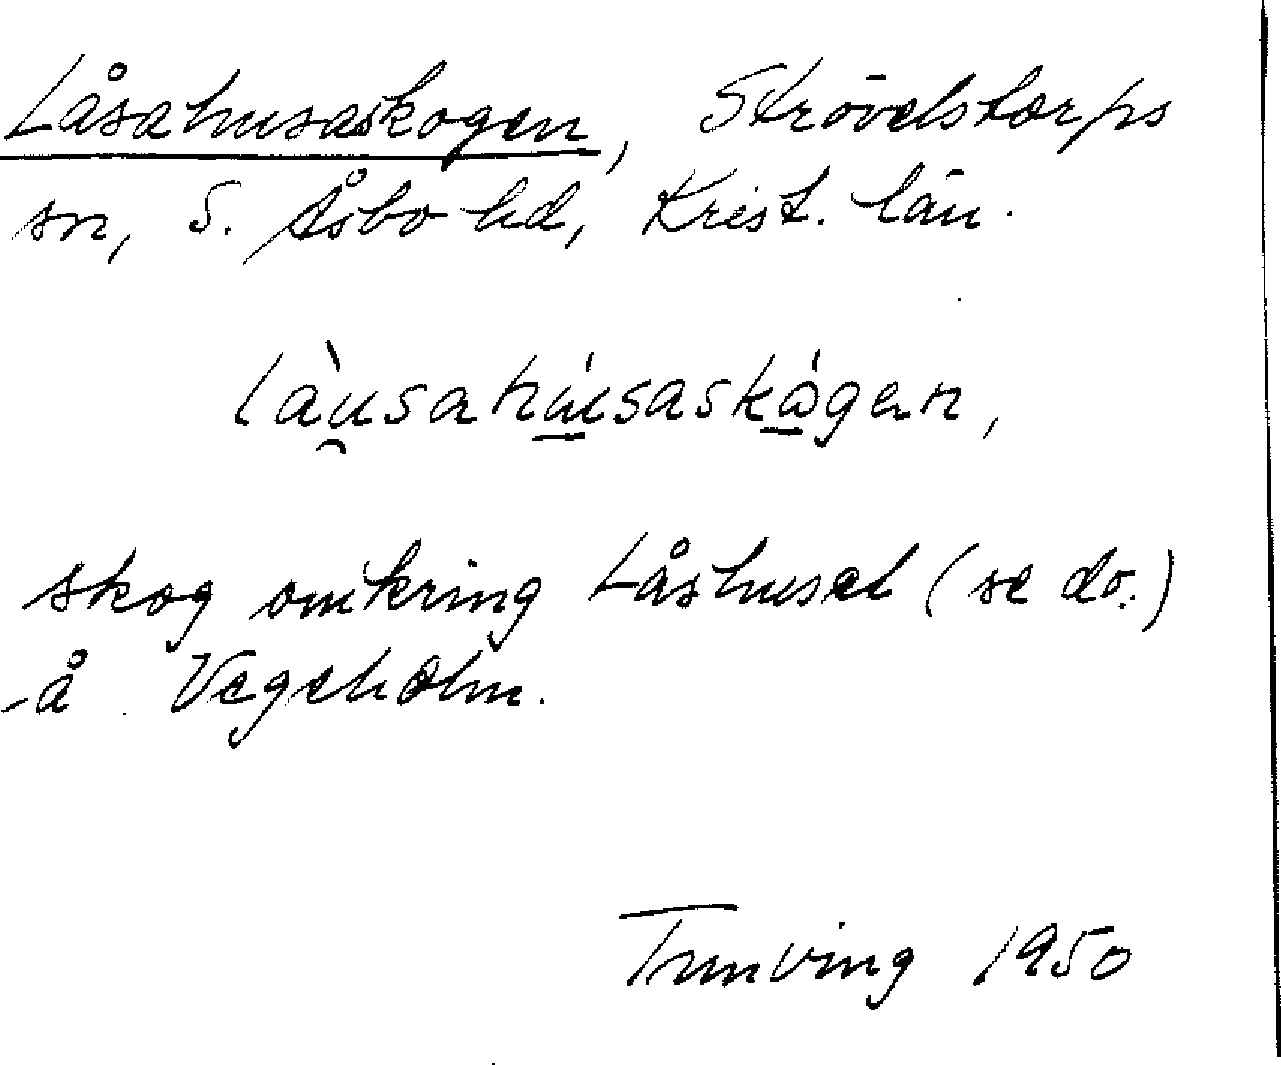 Låsahusaskogen, Strövelstorps
sn, S. Åsbo hd, Krist. län.
làu̯sahúsaskågen,
skog omkring Låshuset (se do.)
å Vegeholm.
Tunving 1950